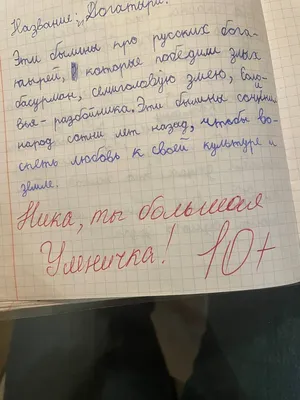 Название: „Богатыри.
Эти былины про русских бога-
тырей, которые победили злых
басурман, семиголовую змею, Соло-
вья-разбойника. Эти былины сочинил
народ сотни лет назад, чтобы во-
спеть любовь к своей культуре и
земле.
Ника, ты большая
Умничка! 10+